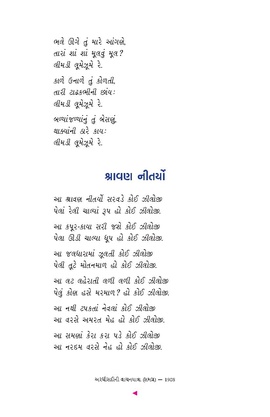 ભલે ઊગે તું મારે આંગણે,
તારાં શાં શાં મૂલવું મૂલ?
લીમડી લૂમેઝૂમે રે.
કાળે ઉનાળે તું કોળતી,
તારી ટાઢકભીની છાંય:
લીમડી લૂમેઝૂમે રે.
બળ્યાંજળ્યાંનું તું બેસણું,
થાક્યાંની ઠારે કાય:
લીમડી લૂમેઝૂમે રે.
શ્રાવણ નીતર્યો
આ શ્રાવણ નીતર્યો સરવડે કોઈ ઝીલોજી
પેલાં રેલી ચાલ્યાં રૂપ હો કોઈ ઝીલોજી.
આ કપૂર-કાયા સરી જશે કોઈ ઝીલોજી
પેલા ઊડી ચાલ્યા ધૂપ હો કોઈ ઝીલોજી.
આ જલધારામાં ઝૂલતી કોઈ ઝીલોજી
પેલી તૂટે મોતનમાળ હો કોઈ ઝીલોજી.
આ લટ લહેરાતી લળી લળી કોઈ ઝીલોજી
પેલું કોણ હસે મરમાળ? હો કોઈ ઝીલોજી.
આ નથી ટપકતાં નેવલાં કોઈ ઝીલોજી
આ વરસે અમરત મેહ હો કોઈ ઝીલોજી.
આ સમણાં કેરા કરા પડે કોઈ ઝીલોજી
આ નરદમ વરસે નેહ હો કોઈ ઝીલોજી.